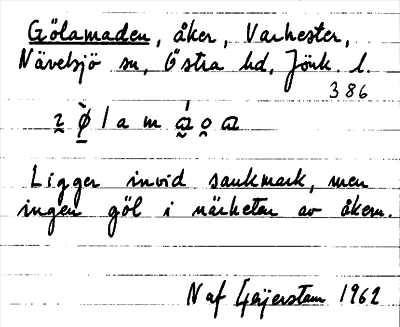 Gölamaden, åker, Varhester,
Nävelsjö sn, Östra hd, Jönk. l.
386
Ligger invid sankmark, men
ingen göl i närheten av åkern.
N af Geijerstam 1962